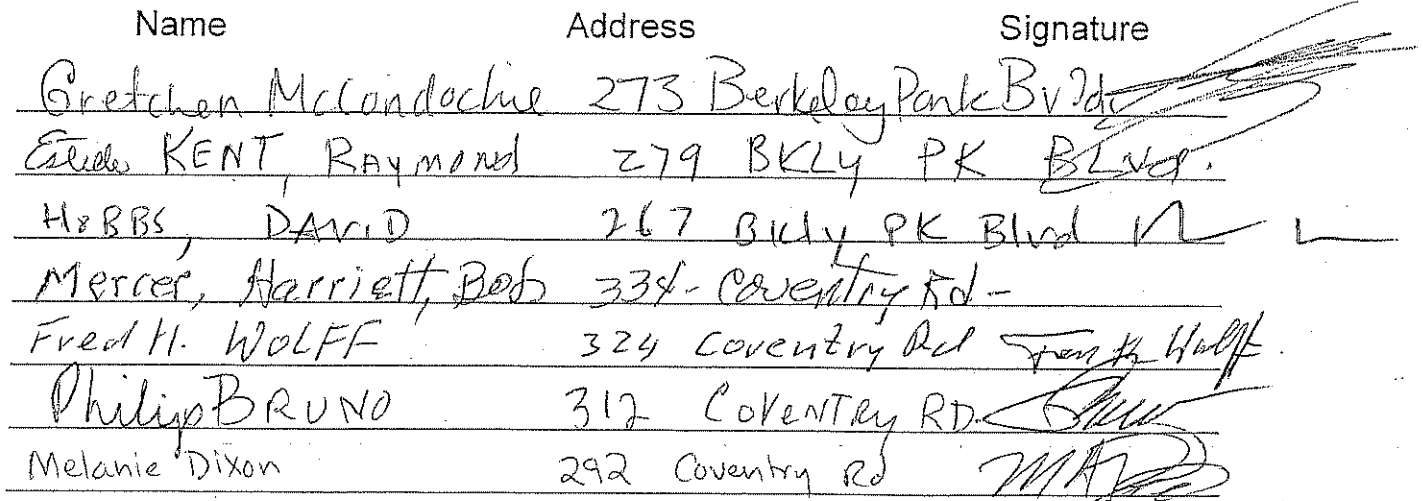 Name Address Signature
Gretchen McCondochie 273 Berkeley Park Bvld.
KENT, RAYMOND 279 BKLY PK BLVD.
HOBBS, DAVID 267 Bkly PK Blvd
Mercer, Harriett, Bob 334- Coventry Rd-
Fred H. WOLFF 324 Coventry Rd Fred H. Wolff
Philip BRUNO 312 COVENTRY RD.
Melanie Dixon 292 Coventry Rd